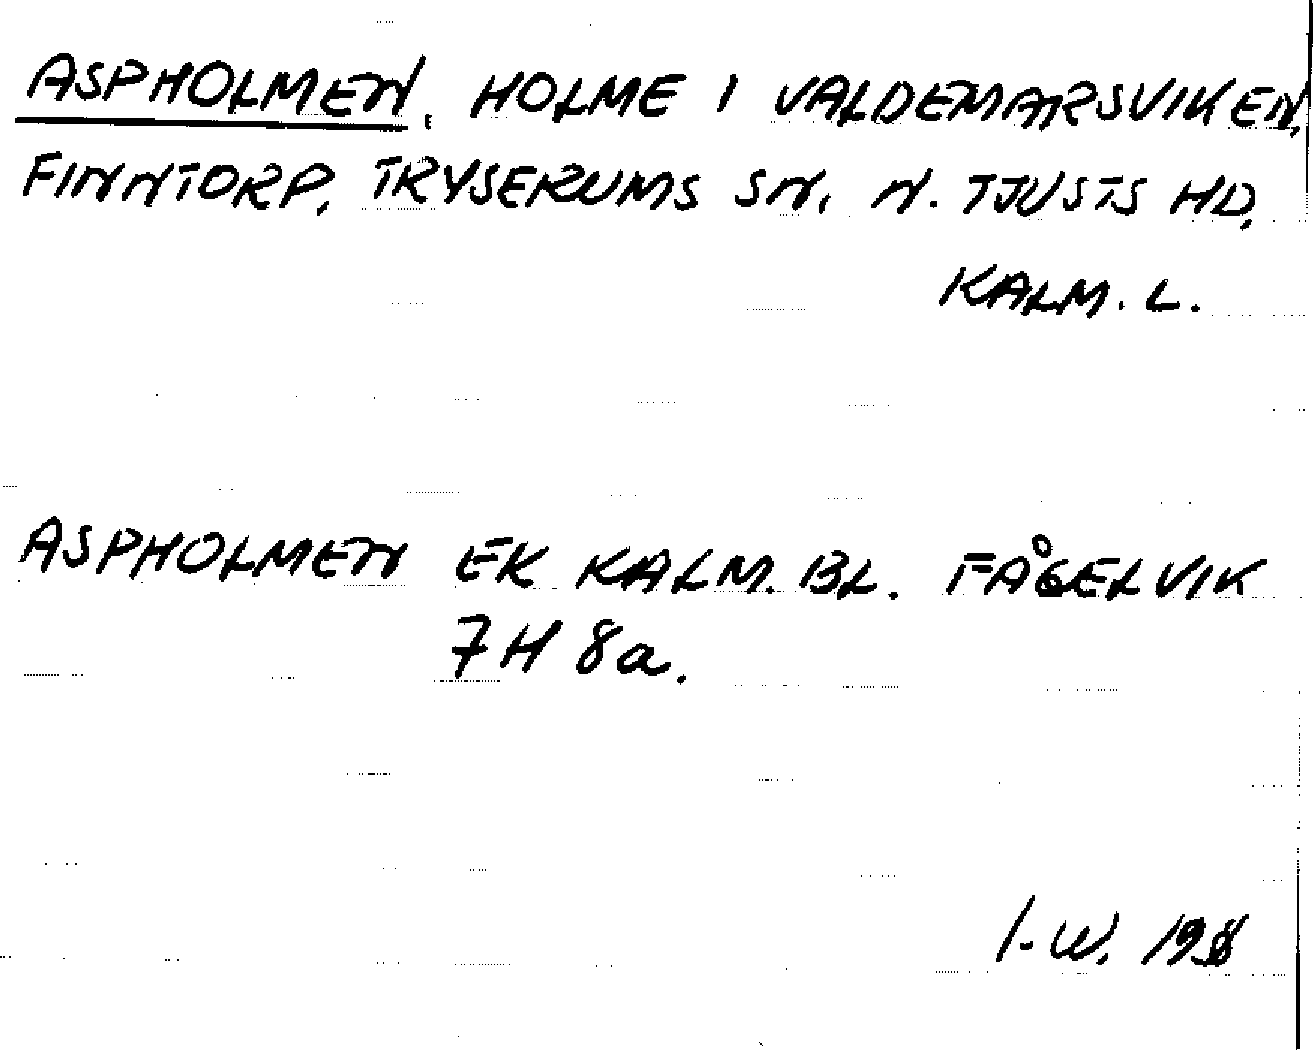 ASPHOLMEN, HOLME I VALDEMARSVIKEN,
FINNTORP, TRYSERUMS SN, N. TJUSTS HD,
KALM. L.
ASPHOLMEN EK KALM. BL. FÅGELVIK
7H 8a.
I-W.